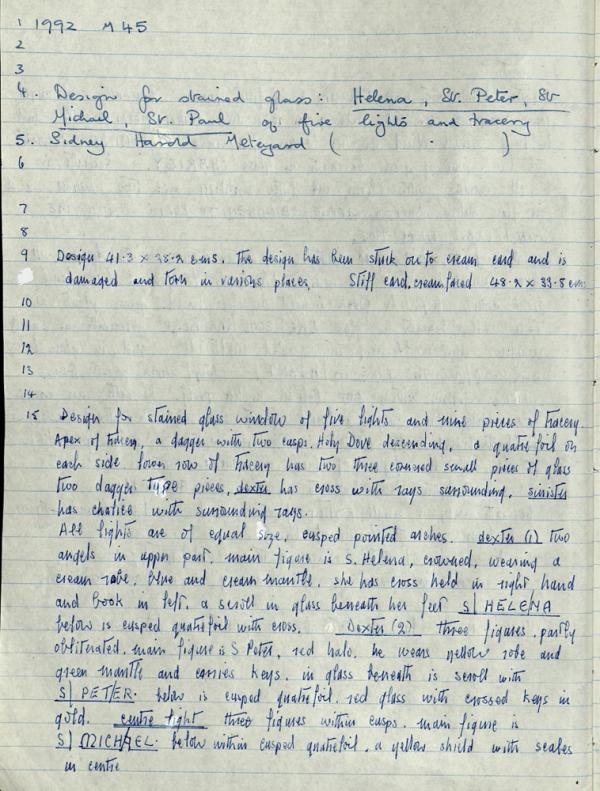 1 1992 M45
2
3
4. Design for stained glass: Helena, St. Peter, St
Michael, St. Paul of five lights and tracery
5. Sidney Harold Meteyard ( )
6
7
8
9 Design 41.3 x 38.2 cms. The design has been stuck on to cream card and is
damaged and torn in various places. Stiff card, cream faced 48.2 x 33.8 cms
10
11
12
13
14
15 Design for stained glass window of five lights and nine pieces of tracery
Apex of tracery, a dagger with two cusps. Holy Dove descending. a quatrefoil on
each side lower row of tracery has two three cornered small pieces of glass
two dagger type pieces, dexter has cross with rays surrounding. sinister
has chalice with surrounding rays.
All lights are of equal size, cusped pointed arches. dexter (1) two
angels in upper part. main figure is S. Helena, crowned, wearing a
cream robe, blue and cream mantle. she has cross held in right hand
and book in left. a scroll in glass beneath her feet S| HELENA
below is cusped quatrefoil with cross. Dexter (2) three figures, partly
obliterated. main figure is S Peter, red halo. he wears yellow robe and
green mantle and carries keys. in glass beneath is scroll with
S| PETER. below is cusped quatrefoil. red glass with crossed keys in
gold. centre light three figures within cusps. main figure is
S| MICHAEL. below within cusped quatrefoil. a yellow shield with scales
in centre